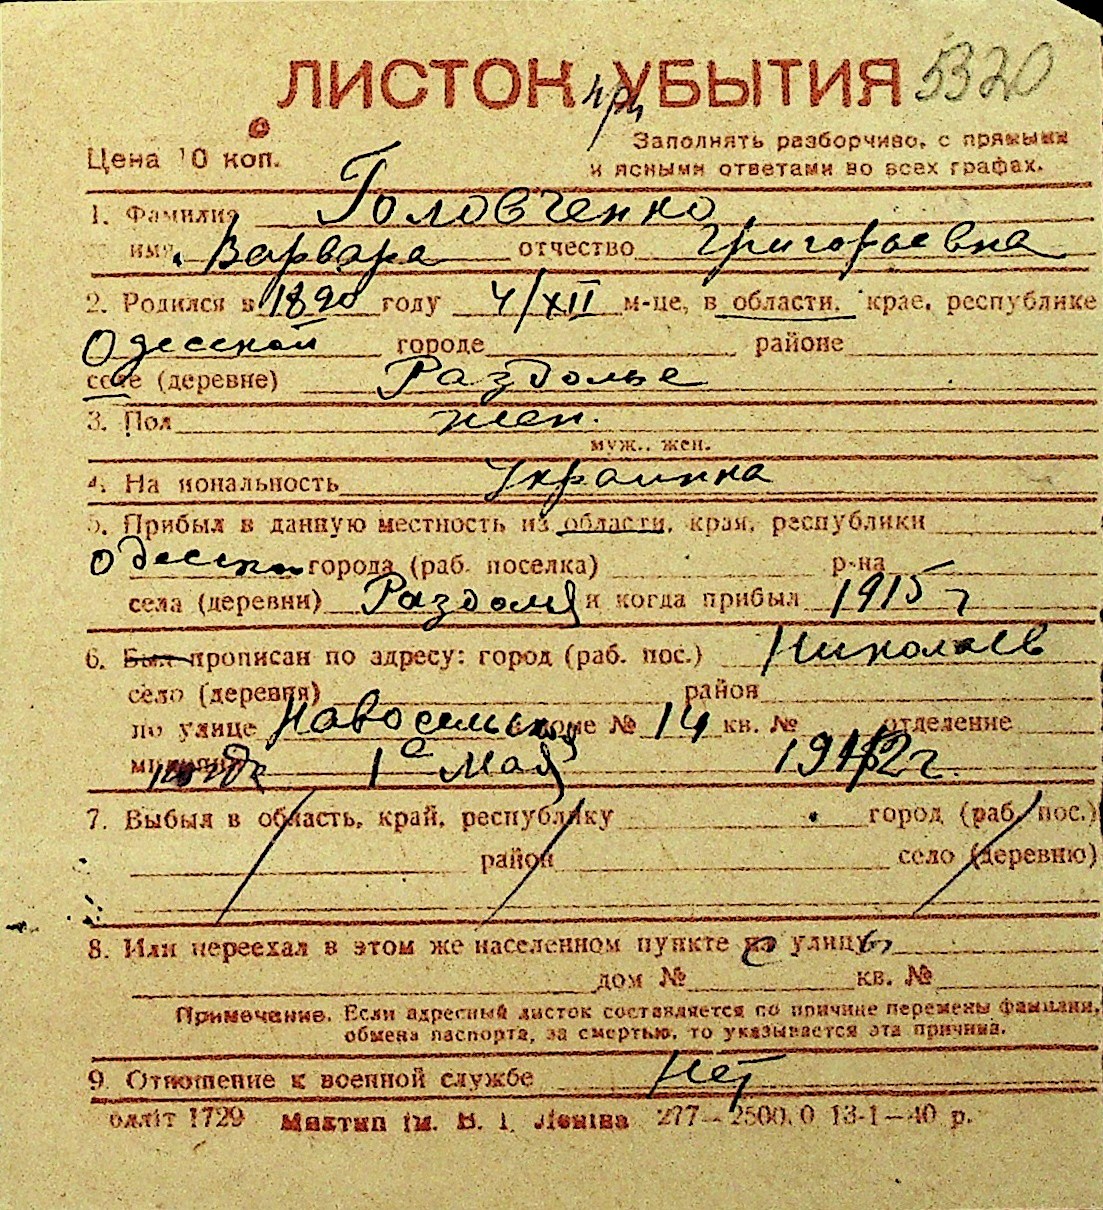 ЛИСТОК при УБЫТИЯ 5320
Цена 10 коп.
Заполнять разборчиво, с прямыми
и ясными ответами во всех графах.
1. Фамилия Головченко
имя Варвара отчество Григорьевна
2. Родился в 1890 году 4/XII м-це, в области, крае, республике
Одесской городе районе
селе (деревне) Раздолье
3. Пол жен.
муж., жен.
4. На иональность Украинка
5. Прибыл в данную местность из области, края, республики
Одесской города (раб. поселка) р-на
села (деревни) Раздолья и когда прибыл 1915 г
6. Был прописан по адресу: город (раб. пос.) Николаев
село (деревня) район
по улице Новосельской доме № 14 кв. № отделение
милиции 1го Мая 1942 г.
7. Выбыл в область, край, республику город (раб. пос.)
район село (деревню)
8. Или переехал в этом же населенном пункте с улицы
дом № кв. №
Примечание. Если адресный листок составляется по причине перемены фамилии,
обмена паспорта, за смертью, то указывается эта причина.
9. Отношение к военной службе Нет
блліт 1729 Миктип ім. В. І. Леніна 277—2500.0 13-1—40 р.